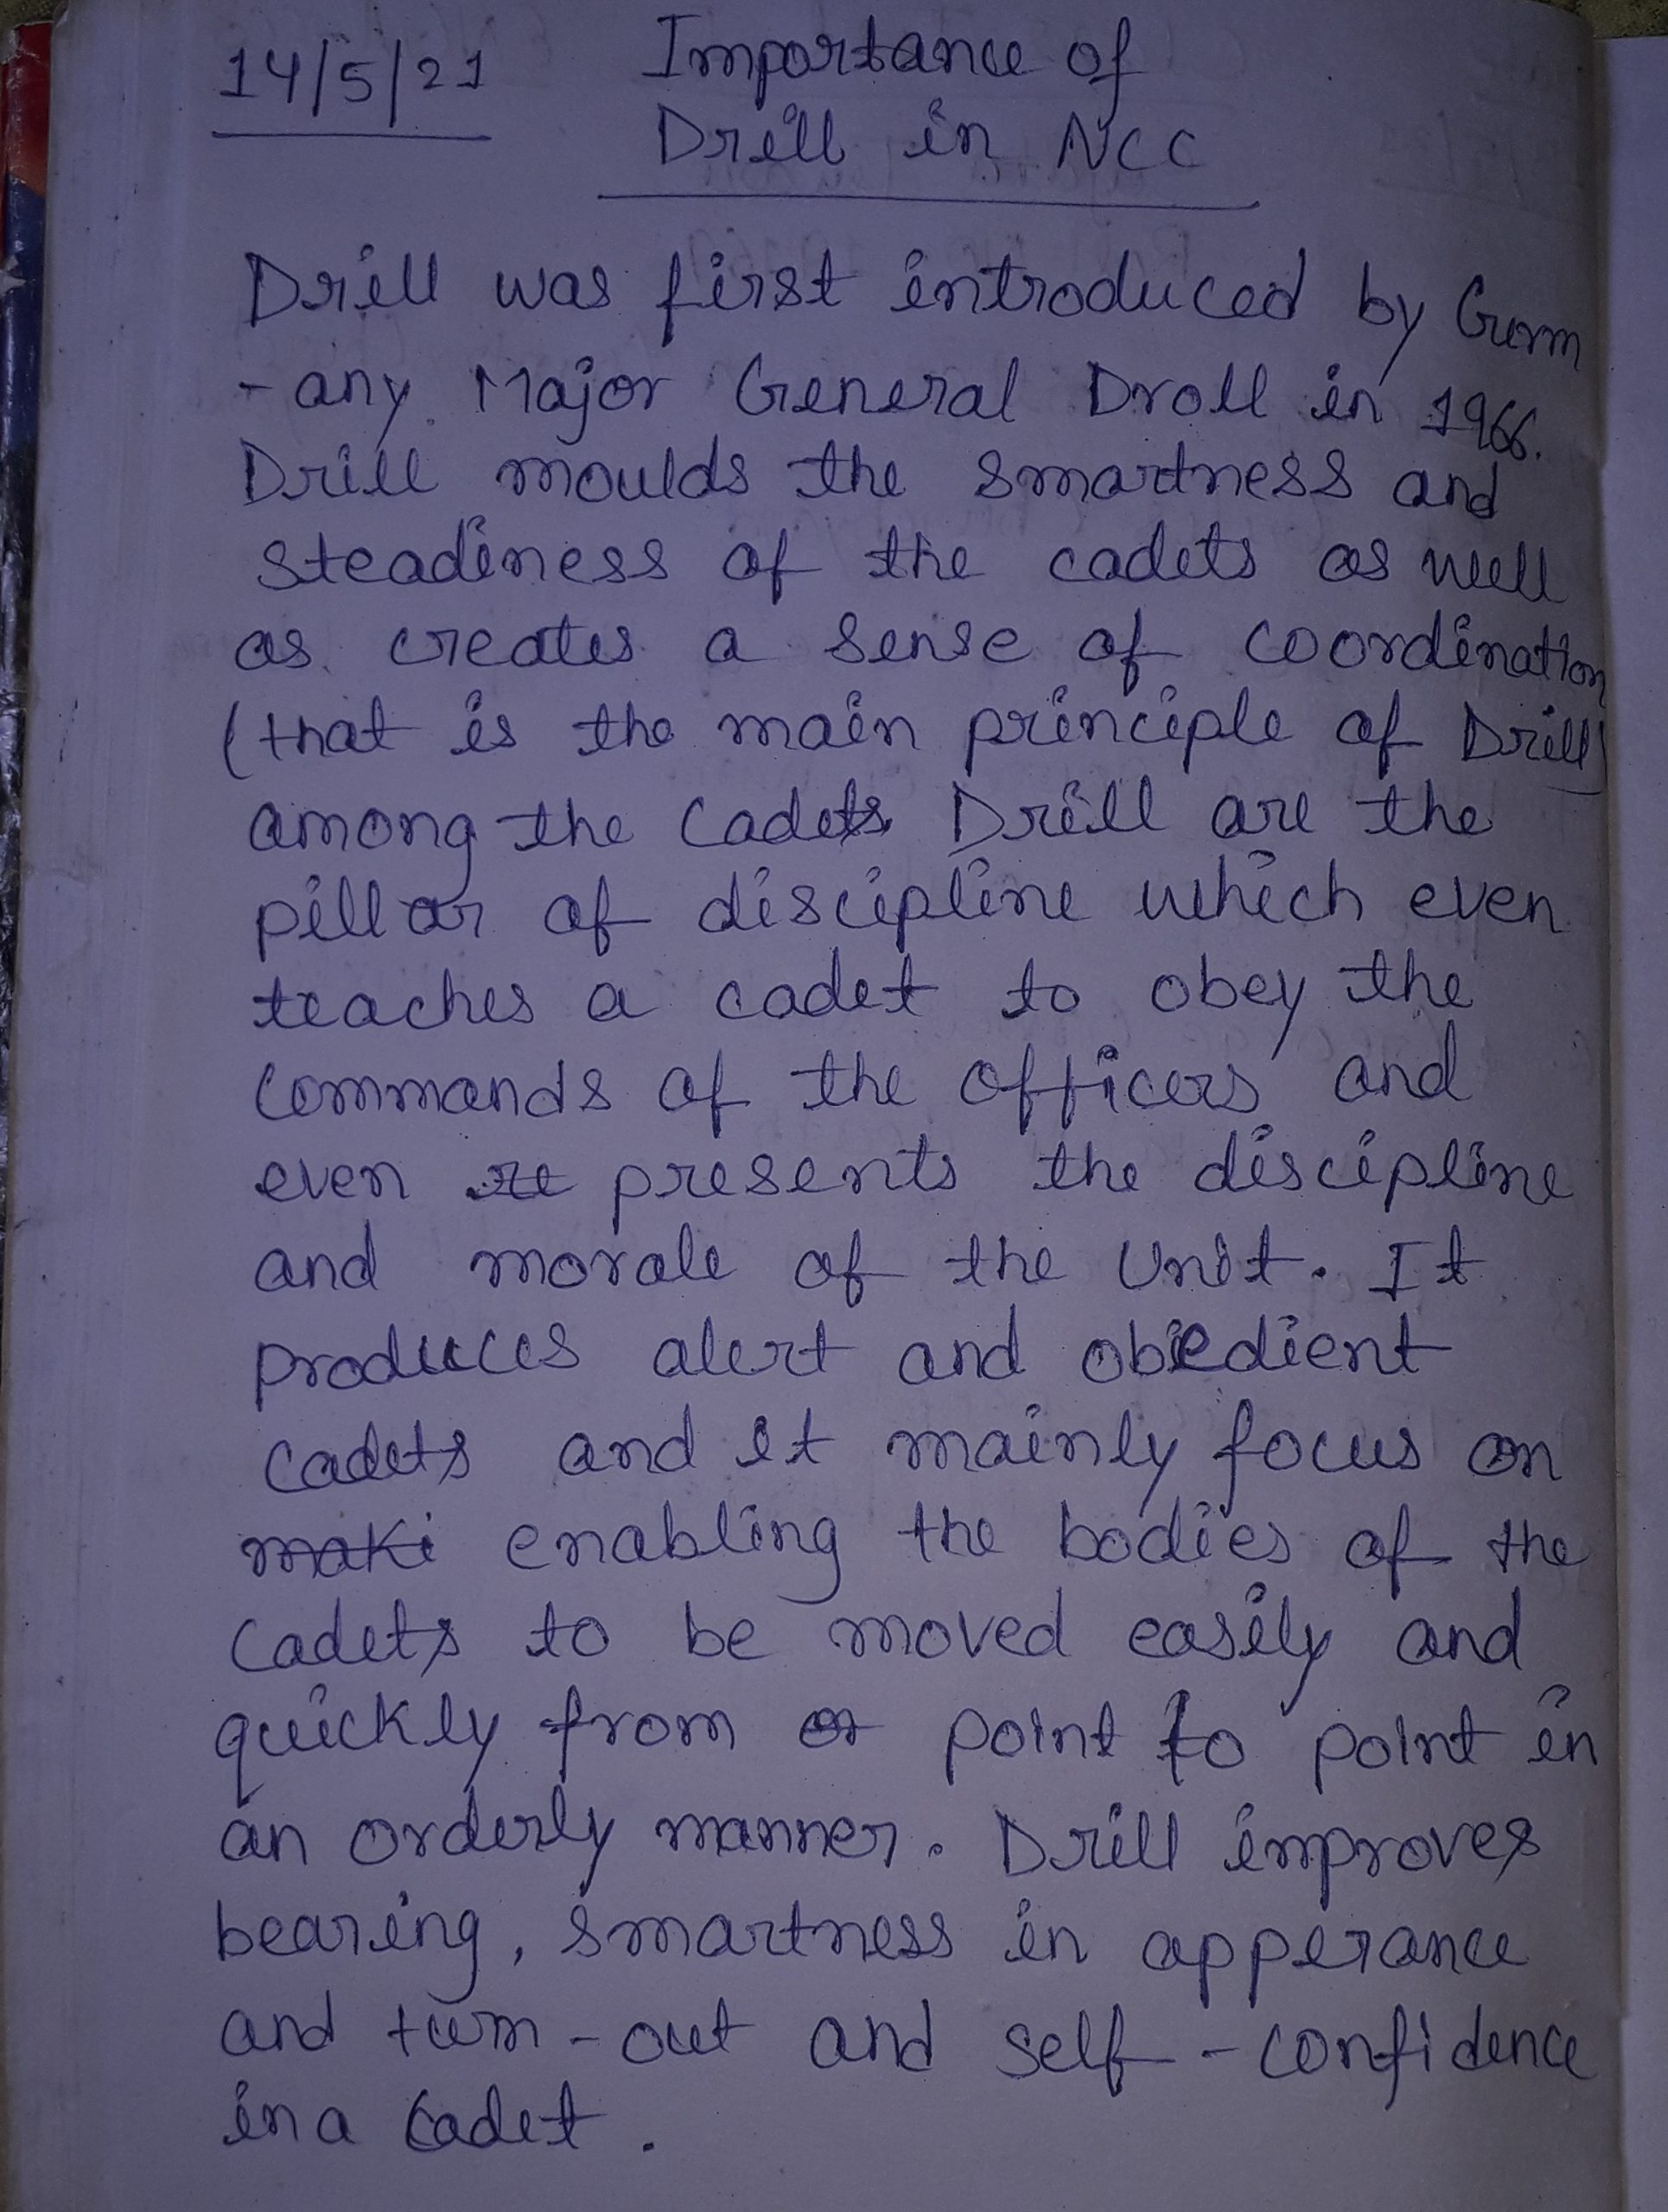 14/5/21
Importance of
Drill in NCC
Drill was first introduced by Germ
-any Major General Droll in 1966.
Drill moulds the smartness and
steadiness of the cadets as well
as creates a sense of coordination
(that is the main principle of Drill)
among the cadets. Drill are the
pillar of discipline which even
teaches a cadet to obey the
commands of the officers and
even re presents the discipline
and morale of the Unit. It
produces alert and obiedient
cadets and it mainly focus on
maki enabling the bodies of the
cadets to be moved easily and
quickly from point to point in
an orderly manner. Drill improves
bearing, smartness in apperance
and turn-out and self-confidence
in a cadet.